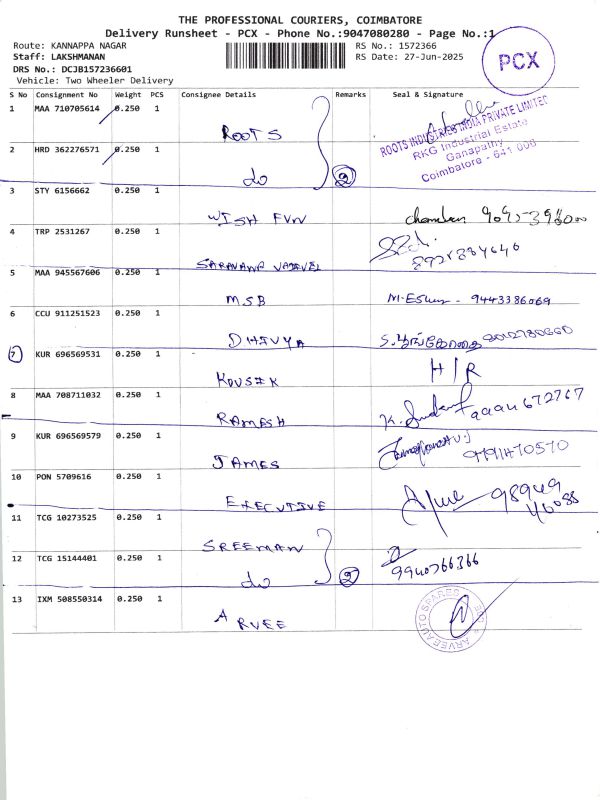 THE PROFESSIONAL COURIERS, COIMBATORE
Delivery Runsheet - PCX - Phone No.:9047080280 - Page No.:1
Route: KANNAPPA NAGAR
Staff: LAKSHMANAN
DRS No.: DCJB157236601
Vehicle: Two Wheeler Delivery
RS No.: 1572366
RS Date: 27-Jun-2025
PCX
S No Consignment No Weight PCS Consignee Details Remarks Seal & Signature
1 MAA 710705614 0.250 1 ROOTS
ROOTS INDUSTRIES INDIA PRIVATE LIMITED
RKG Industrial Estate
Ganapathy
Coimbatore - 641 006
2 HRD 362276571 0.250 1 do 2
3 STY 6156662 0.250 1 WISH FUN
4 TRP 2531267 0.250 1 SARAVANA
5 MAA 945567606 0.250 1 MSB 9443386069
6 CCU 911251523 0.250 1 DHIVYA
7 KUR 696569531 0.250 1 KOUSIK H/R
8 MAA 708711032 0.250 1 RAMESH
9 KUR 696569579 0.250 1 JAMES
10 PON 5709616 0.250 1 EXECUTIVE
11 TCG 10273525 0.250 1 SREEMAN
12 TCG 15144401 0.250 1 do 2 9940766366
13 IXM 508550314 0.250 1 ARVEE
ARVEE AUTO SPARES